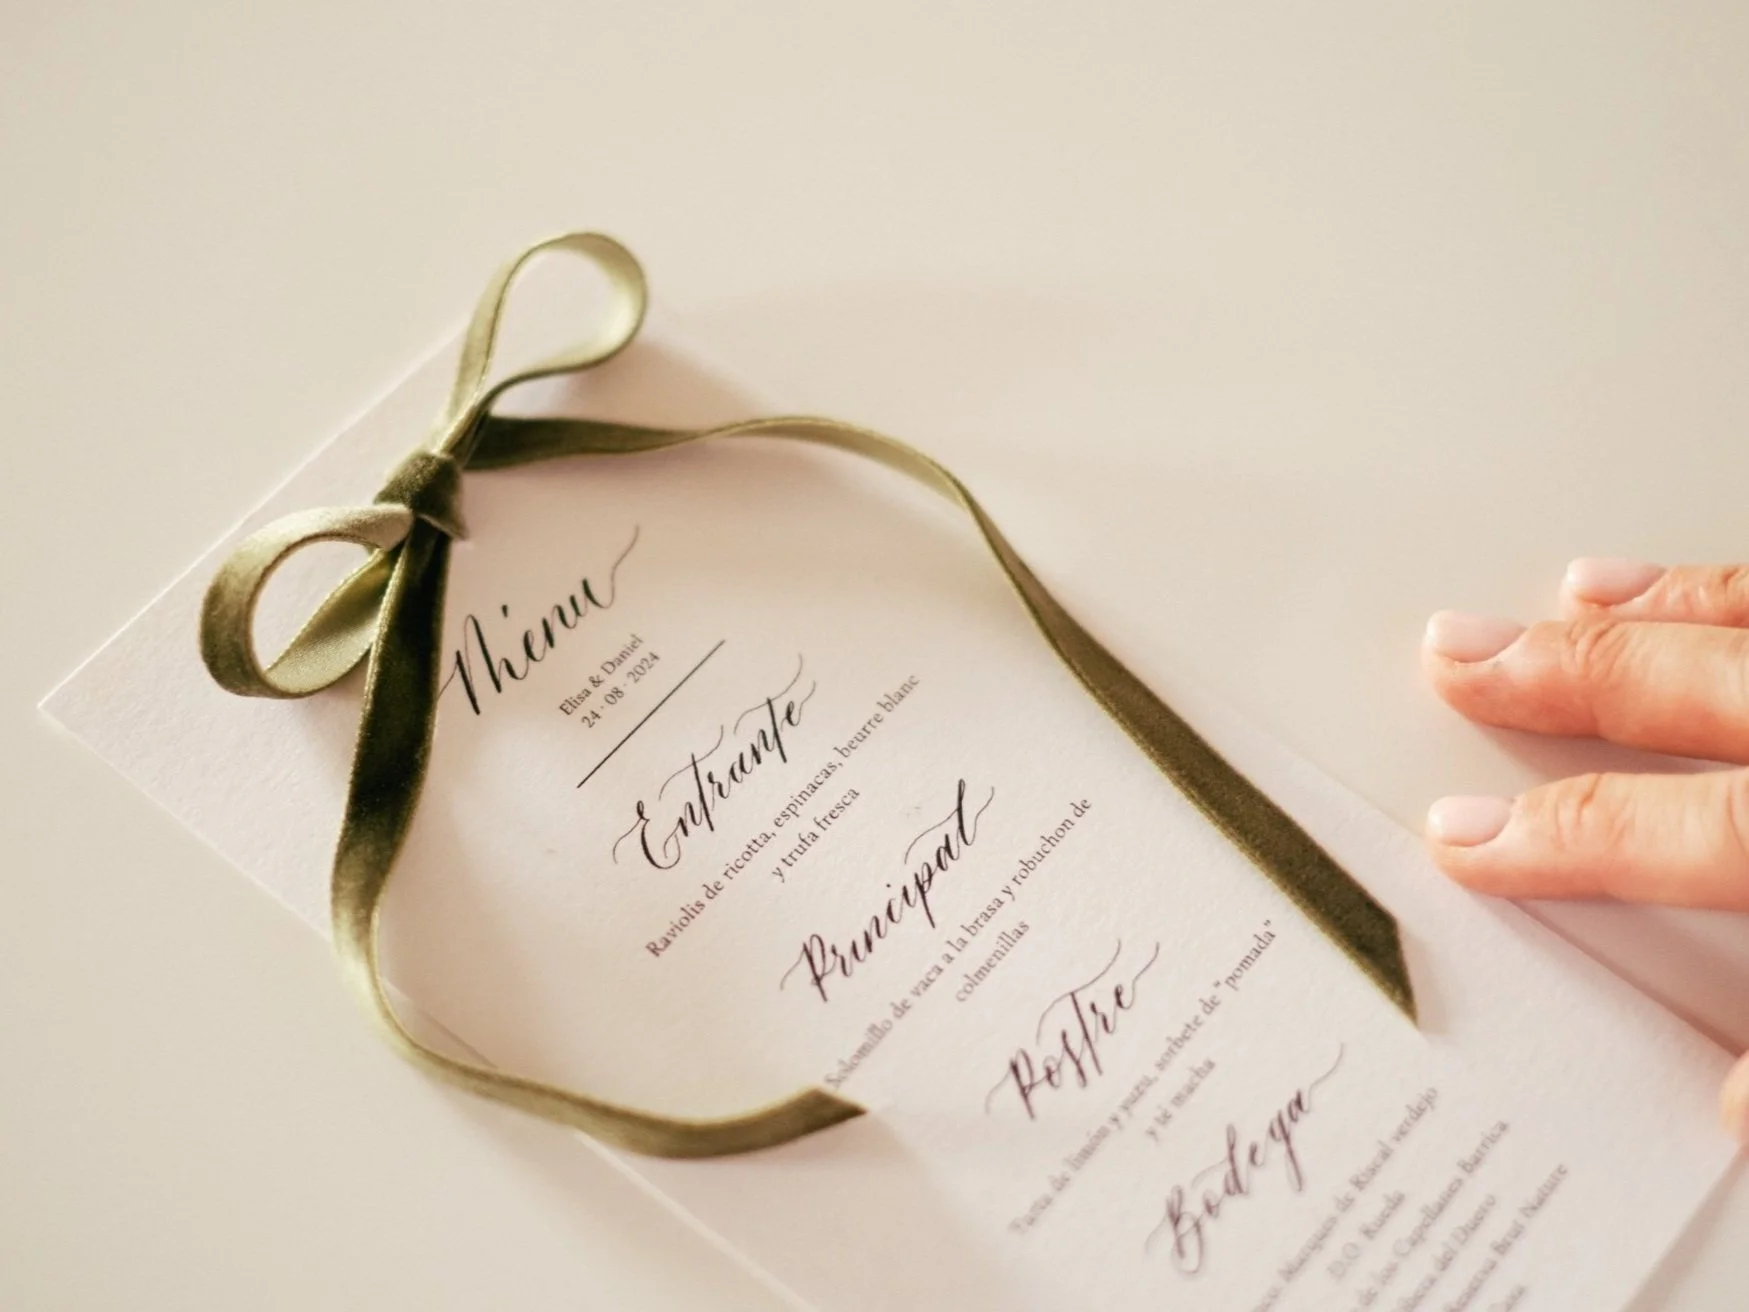 Menu
Elisa & Daniel
24 · 08 · 2024
Entrante
Raviolis de ricotta, espinacas, beurre blanc
y trufa fresca
Principal
Solomillo de vaca a la brasa y robuchon de
colmenillas
Postre
Tarta de limón y yuzu, sorbete de "pomada"
y té macha
Bodega
Marqués de Riscal verdejo
D.O. Rueda
de los Capellanes Barrica
Ribera del Duero
Brut Nature